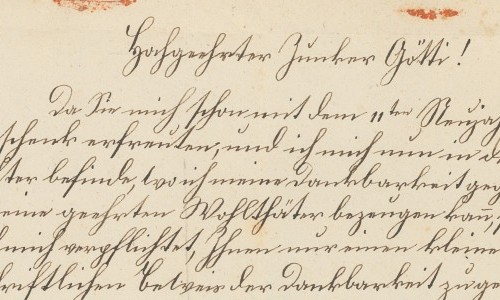 Hochgeehrter Junker Götti!
Da Sie mich schon mit dem 11ten Neujah
schenk erfreuten, und ich mich nun in d
lter befinde, wo ich meine Dankbarkeit geg
eine geehrten Wohlthäter bezeugen kañ,
mich verpflichtet, Ihnen nur einen kleine
hriftlichen Beweis der Dankbarkeit zu ge